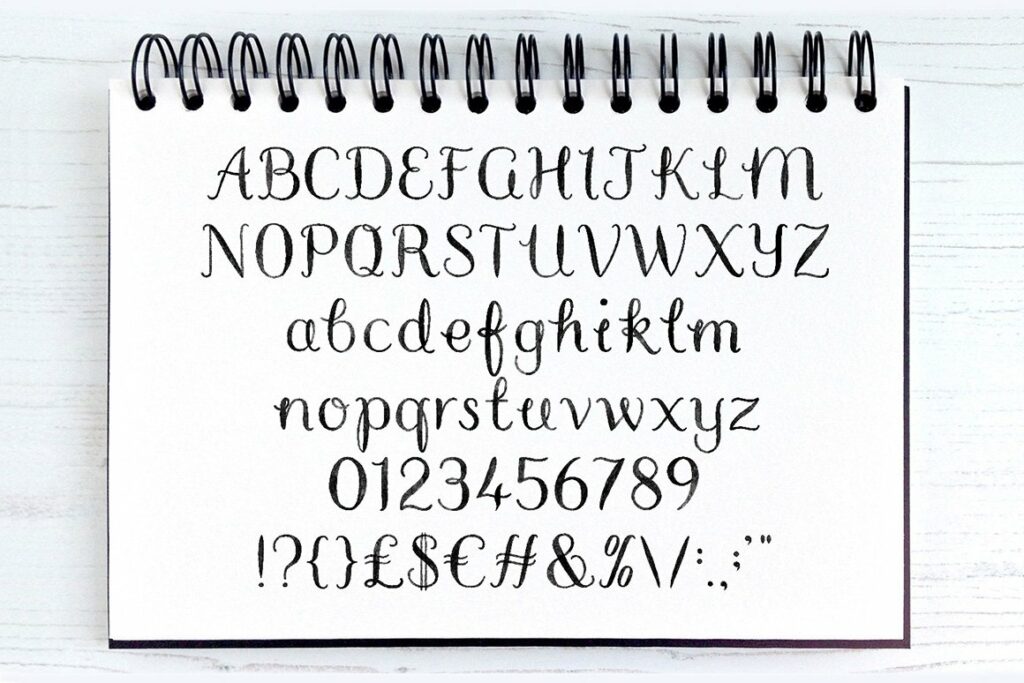 ABCDEFGHIJKLM
NOPQRSTUVWXYZ
abcdefghiklm
nopqrstuvwxyz
0123456789
!?{}£$€#&%\/:.,;'"